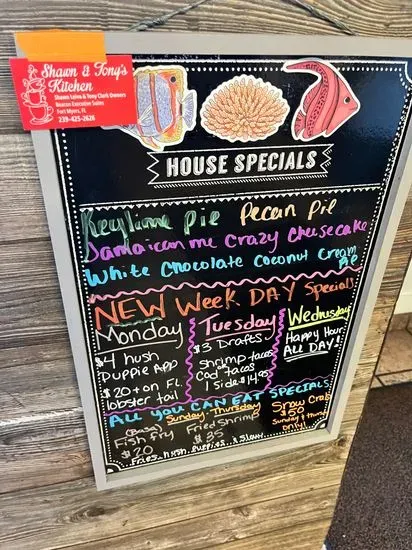 Shawn & Tony's
Kitchen
Shawn Leiva & Tony Clark Owners
Beacon Executive Suites
Fort Myers, FL
239-425-2626
HOUSE SPECIALS
Keylime Pie Pecan Pie
Jamaican me crazy Cheesecake
White Chocolate Coconut Cream
Pie
NEW Week DAY Specials
Monday
$4 hush
Puppie App
$20 + on FL.
lobster tail
Tuesday
$3 Drafts
shrimp tacos
Cod tacos
1 side $14.95
Wednesday
Happy Hour
ALL DAY!
ALL YOU CAN EAT SPECIALS
Sunday - Thursday
(Basa)
Fish fry
$20
Fried Shrimp
$35
Snow Crab
$50
Sunday & Thurs
only!
Fries, Hush Puppies & Slaw